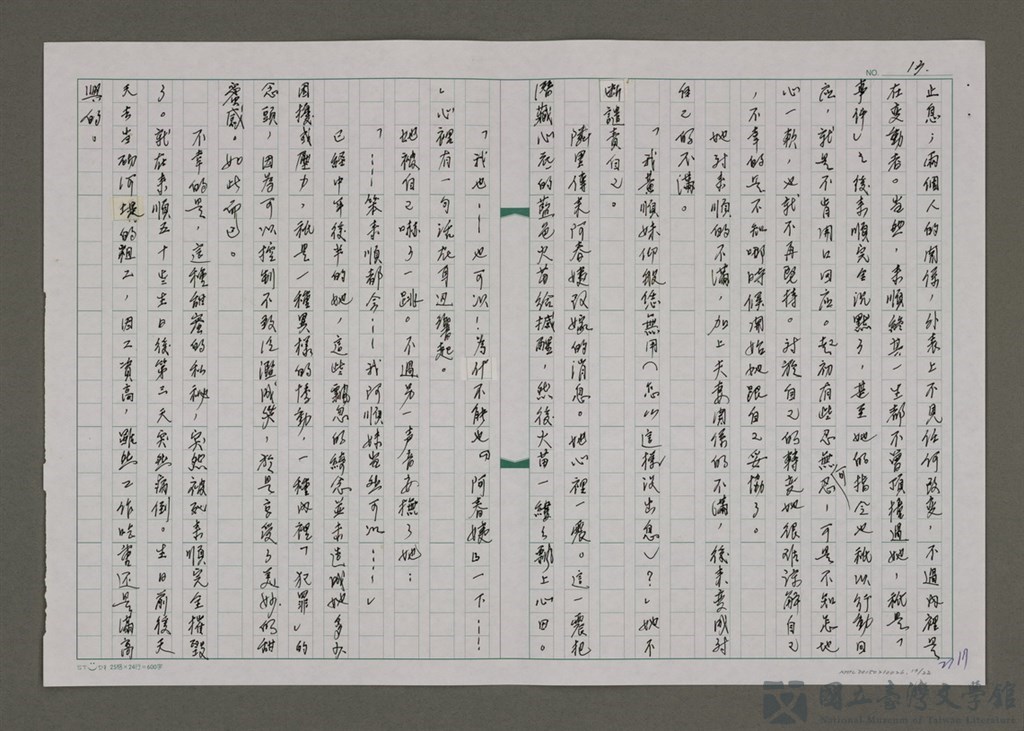 NO. 13.
止息;兩個人的關係,外表上不見任何改變,不過內裡是
在變動者。當然,來順終其一生都不曾頂撞過她,祇是「
事件」之後來順完全沉默了,甚至她的指令也祇以行動回
应,就是不肯用口回应。起初有些忍無可忍,可是不知怎地
心一軟,也就不再堅持。对於自己的轉变她很难諒解自己
,不幸的是不知哪時候開始她跟自己妥協了。
她对來順的不滿,加上夫妻関係的不滿,後來变成对
自己的不滿。
「我黃順妹仰般恁無用(怎以這樣沒出息)?」她不
斷譴責自己。
隣里傳來阿春嫂改嫁的消息。她心裡一震。這一震把
潛藏心底的藍色火苗給撼醒,然後火苗一縷々飄上心田。
「我也……也可以!為什不能也『阿春嫂』一下……
」心裡有一句話在耳边響起。
她被自己嚇了一跳。不過另一声音安撫了她:
「……笨來順都会……我阿順妹當然可以……」
已經中年後半的她,這些飄忽的綺念並未造成她多少
困擾或壓力,祇是一種異樣的悸動,一種內裡「犯罪」的
念頭,因為可以控制不致泛濫成災,於是享受了美妙的甜
蜜感。如此而已。
不幸的是,這種甜蜜的私秘,突然被死來順完全摧毀
了。就在來順五十些生日後第三天突然病倒。生日前後天
天去当砌河堤的粗工,因工資高,雖然工作吃
實還是滿高
興的。
25格×24行=600字
國立臺灣文學館
National Museum of Taiwan Literature